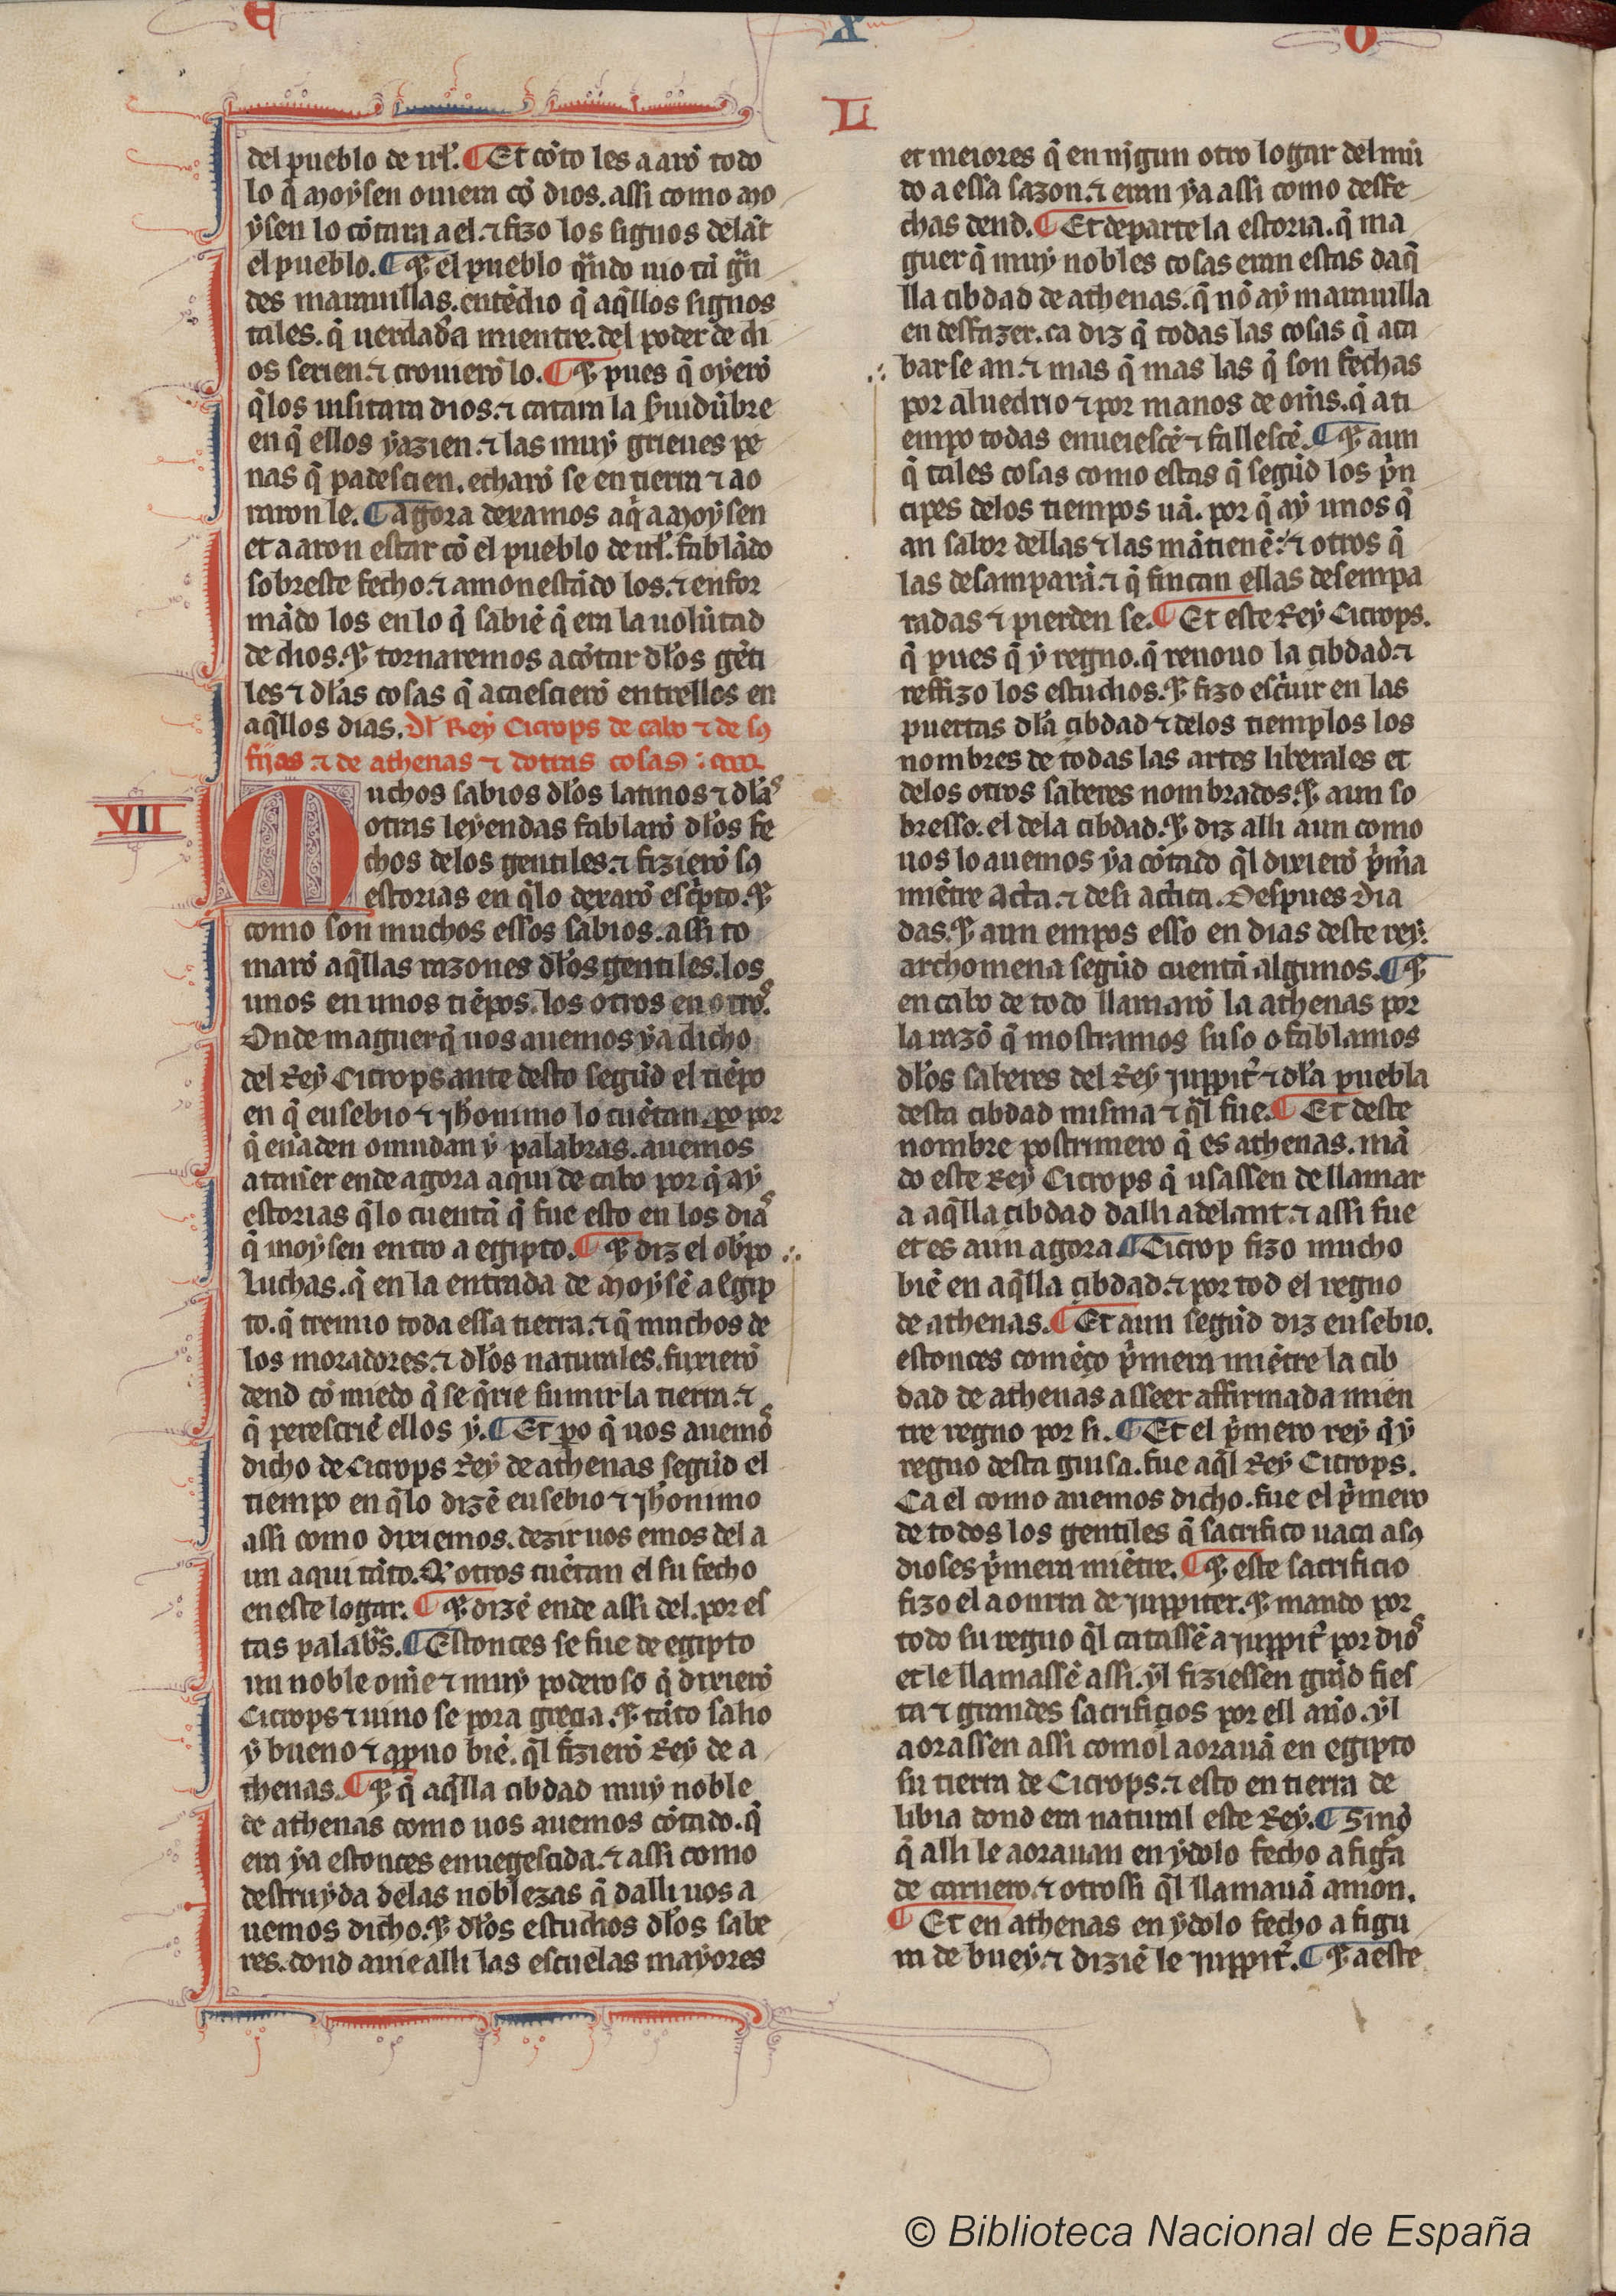 E X O
L
del pueblo de irl̃. ¶ Et cõto les aarõ todo
lo q̃ moysen ouiera cõ dios. assi como mo
ysen lo cõtara a el. ⁊ fizo los signos delãt
el pueblo. ¶ ⁊ el pueblo quãdo uio tã grã
des marauillas. entẽdio q̃ aq̃llos signos
tales. q̃ uerdad̃a mientre. del poder de di
os serien. ⁊ crouierõ lo. ¶ ⁊ pues q̃ oyerõ
q̃ los uisitara dios. ⁊ catara la s̃uidũbre
en q̃ ellos yazien. ⁊ las muy grieues pe
nas q̃ padescien. echarõ se en tierra ⁊ ao
raron le. ¶ agora dexamos aq̃ a moysen
et aaron estar cõ el pueblo de irl̃. fablãdo
sobreste fecho. ⁊ amonestãdo los. ⁊ enfor
mãdo los en lo q̃ sabiẽ q̃ era la uolũtad
de dios. ⁊ tornaremos a cõtar dl̃os gẽti
les ⁊ dl̃as cosas q̃ acaescierõ entrellos en
aq̃llos dias. Dl̃ Rey Cicrops de cabo ⁊ de sꝯ
fijas ⁊ de athenas ⁊ dotras cosas
VII
Muchos sabios dl̃os latinos ⁊ dl̃as
otras leyendas fablarõ dl̃os fe
chos delos gentiles. ⁊ fizierõ sꝯ
estorias en q̃ lo dexarõ esc̃pto. ⁊
como son muchos essos sabios. assi to
marõ aq̃llas razones dl̃os gentiles. los
unos en unos tiẽpos. los otros en otros.
Onde maguer q̃ uos auemos ya dicho
del Rey Cicrops ante desto segũd el tiẽpo
en q̃ eusebio ⁊ jh̃onimo lo cuẽtan. ꝑo por
q̃ eñaden o mudan y palabras. auemos
a tañer ende agora aqui de cabo por q̃ ay
estorias q̃ lo cuentã q̃ fue esto en los dias
q̃ moysen entro a egipto. ¶ ⁊ diz el ob̃po
Luchas. q̃ en la entrada de moysẽ a Egip
to. q̃ tremio toda essa tierra. ⁊ q̃ muchos de
los moradores. ⁊ dl̃os naturales. fuxierõ
dend cõ miedo q̃ se q̃rie fumir la tierra. ⁊
q̃ perescriẽ ellos y. ¶ Et ꝑo q̃ uos auemos
dicho de Cicrops Rey de athenas segũd el
tiempo en q̃ lo dizẽ eusebio ⁊ jh̃onimo
assi como dixiemos. dezir uos emos del a
un aqui tãto. Q̃ otros cuẽtan el su fecho
en este logar. ¶ ⁊ dizẽ ende assi del. por es
tas palabr̃s. ¶ Estonces se fue de egipto
un noble om̃e ⁊ muy poderoso q̃ dixierõ
Cicrops ⁊ uino se pora grecia. ⁊ tãto salio
y bueno ⁊ aprouo biẽ. q̃l fizierõ Rey de a
thenas. ¶ ⁊ q̃ aq̃lla cibdad muy noble
de athenas como uos auemos cõtado. q̃
era ya estonces enuegescida. ⁊ assi como
destruyda delas noblezas q̃ dalli uos a
uemos dicho. ⁊ dl̃os estudios dl̃os sabe
res. dond auie alli las escuelas mayores
et meiores q̃ en njgun otro logar del mũ
do a essa sazon. ⁊ eran ya assi como desfe
chas dend. ¶ Et departe la estoria. q̃ ma
guer q̃ muy nobles cosas eran estas daq̃
lla cibdad de athenas. q̃ nõ ay marauilla
en desfazer. ca diz q̃ todas las cosas q̃ aca
bar se an. ⁊ mas q̃ mas las q̃ son fechas
por aluedrio ⁊ por manos de om̃s. q̃ a ti
empo todas enueiescẽ ⁊ fallescẽ. ¶ ⁊ aun
q̃ tales cosas como estas q̃ segũd los p̃n
cipes delos tiempos uã. por q̃ ay unos q̃
an sabor dellas ⁊ las mãtienẽ. ⁊ otros q̃
las desamparã. ⁊ q̃ fincan ellas desempa
radas ⁊ pierden se. ¶ Et este Rey Cicrops.
q̃ pues q̃ y regno. q̃ renouo la cibdad. ⁊
reffizo los estudios. ⁊ fizo esc̃uir en las
puertas dl̃a cibdad ⁊ delos tiemplos los
nombres de todas las artes liberales et
delos otros saberes nombrados. ⁊ aun so
bresso. el dela cibdad. ⁊ diz alli aun como
uos lo auemos ya cõtado q̃l dixierõ p̃m̃a
miẽtre Acta. ⁊ desi actica. Despues dia
das. ⁊ aun empos esso en dias deste rey.
archomena segũd cuentã algunos. ¶ ⁊
en cabo de todo llamarõ la athenas por
la razõ q̃ mostramos suso o fablamos
dl̃os saberes del Rey juppit̃ ⁊ dl̃a puebla
desta cibdad misma ⁊ q̃l fue. ¶ Et deste
nombre postrimero q̃ es athenas. mã
do este Rey Cicrops q̃ usassen de llamar
a aq̃lla cibdad dalli adelant. ⁊ assi fue
et es aun agora ¶ Cicrop fizo mucho
biẽ en aq̃lla cibdad. ⁊ por tod el regno
de athenas. ¶ Et aun segũd diz eusebio.
estonces comẽço p̃mera miẽtre la cib
dad de athenas a sseer affirmada mien
tre regno por si. ¶ Et el p̃mero rey q̃ y
regno desta guisa. fue aq̃l Rey Cicrops.
Ca el como auemos dicho. fue el p̃mero
de todos los gentiles q̃ sacrifico uaca a sꝯ
dioses p̃mera miẽtre. ¶ ⁊ este sacrificio
fizo el a onrra de juppiter. ⁊ mando por
todo su regno q̃l catassẽ a juppit̃ por dios
et le llamassẽ assi. yl fiziessen grãd fies
ta ⁊ grandes sacrificios por ell año. yl
aorassen assi comol aorauã en egipto
su tierra de Cicrops. ⁊ esto en tierra de
libia dond era natural este Rey. ¶ Sinõ
q̃ alli le aorauan en ydolo fecho a figr̃a
de carnero. ⁊ otrossi q̃l llamauã amon.
¶ Et en athenas en ydolo fecho a figu
ra de buey. ⁊ diziẽ le juppit̃. ¶ ⁊ a este
© Biblioteca Nacional de España